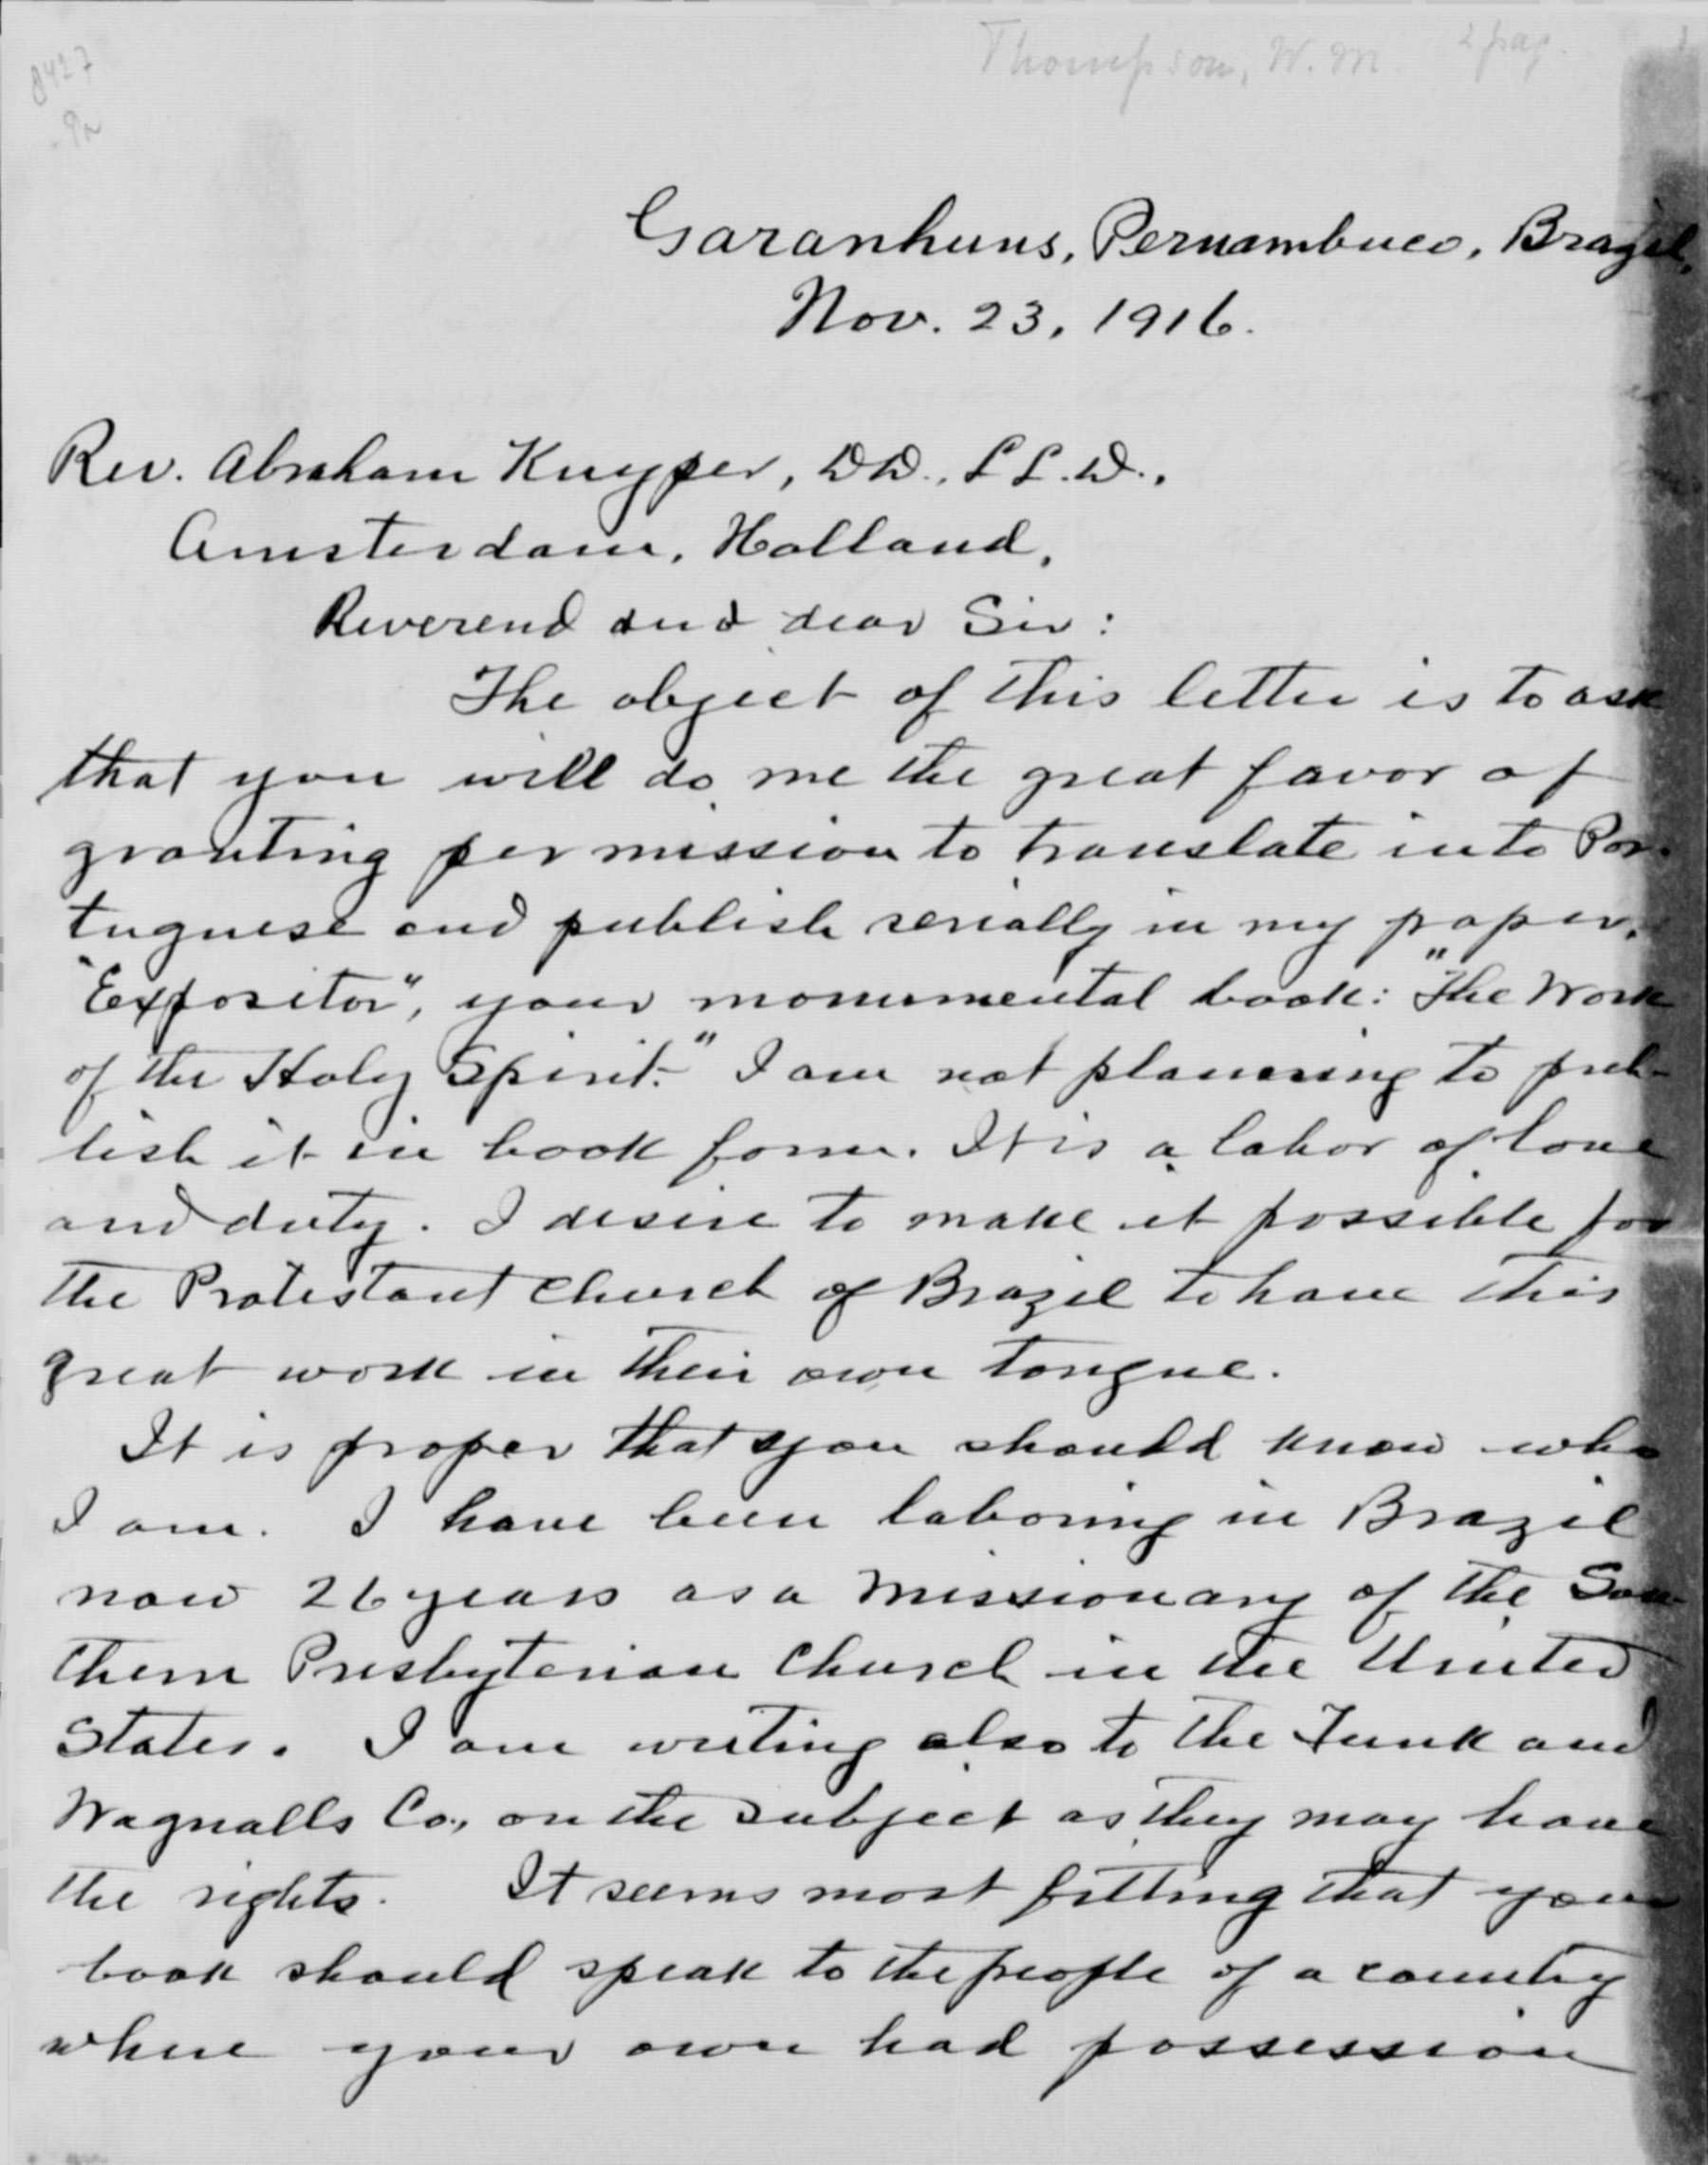 8427
Thompson, W. M. 2 pag.
Garanhuns, Pernambuco, Brazil,
Nov. 23, 1916.
Rev. Abraham Kuyper, DD., LL.D.,
Amsterdam, Holland,
Reverend and dear Sir:
The object of this letter is to ask
that you will do me the great favor of
granting permission to translate into Por-
tuguese and publish serially in my paper,
"Expositor", your monumental book: "The Work
of the Holy Spirit." I am not planning to pub-
lish it in book form. It is a labor of love
and duty. I desire to make it possible for
the Protestant Church of Brazil to have this
great work in their own tongue.
It is proper that you should know who
I am. I have been laboring in Brazil
now 26 years as a missionary of the Sou-
thern Presbyterian Church in the United
States. I am writing also to the Funk and
Wagnalls Co., on the subject as they may have
the rights. It seems most fitting that your
book should speak to the people of a country
where your own had possession